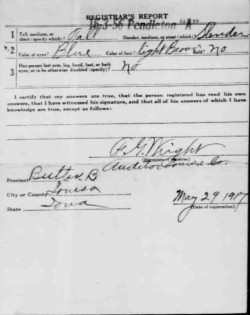 REGISTRAR'S REPORT
16-3-56 Pendleton "A"
1 Tall, medium, or short (specify which)? Tall Slender, medium, or stout (which)? Slender
2 Color of eyes? Blue Color of hair? Light Brown No
3 Has person lost arm, leg, hand, foot, or both eyes, or is he otherwise disabled (specify)? No
I certify that my answers are true, that the person registered has read his own
answers, that I have witnessed his signature, and that all of his answers of which I
have knowledge are true, except as follows:
P. G. Wright
(Signature of registrar)
Auditor Louisa Co.
Precinct B
City or County Louisa
State Iowa
May 29 1917
(Date of registration)